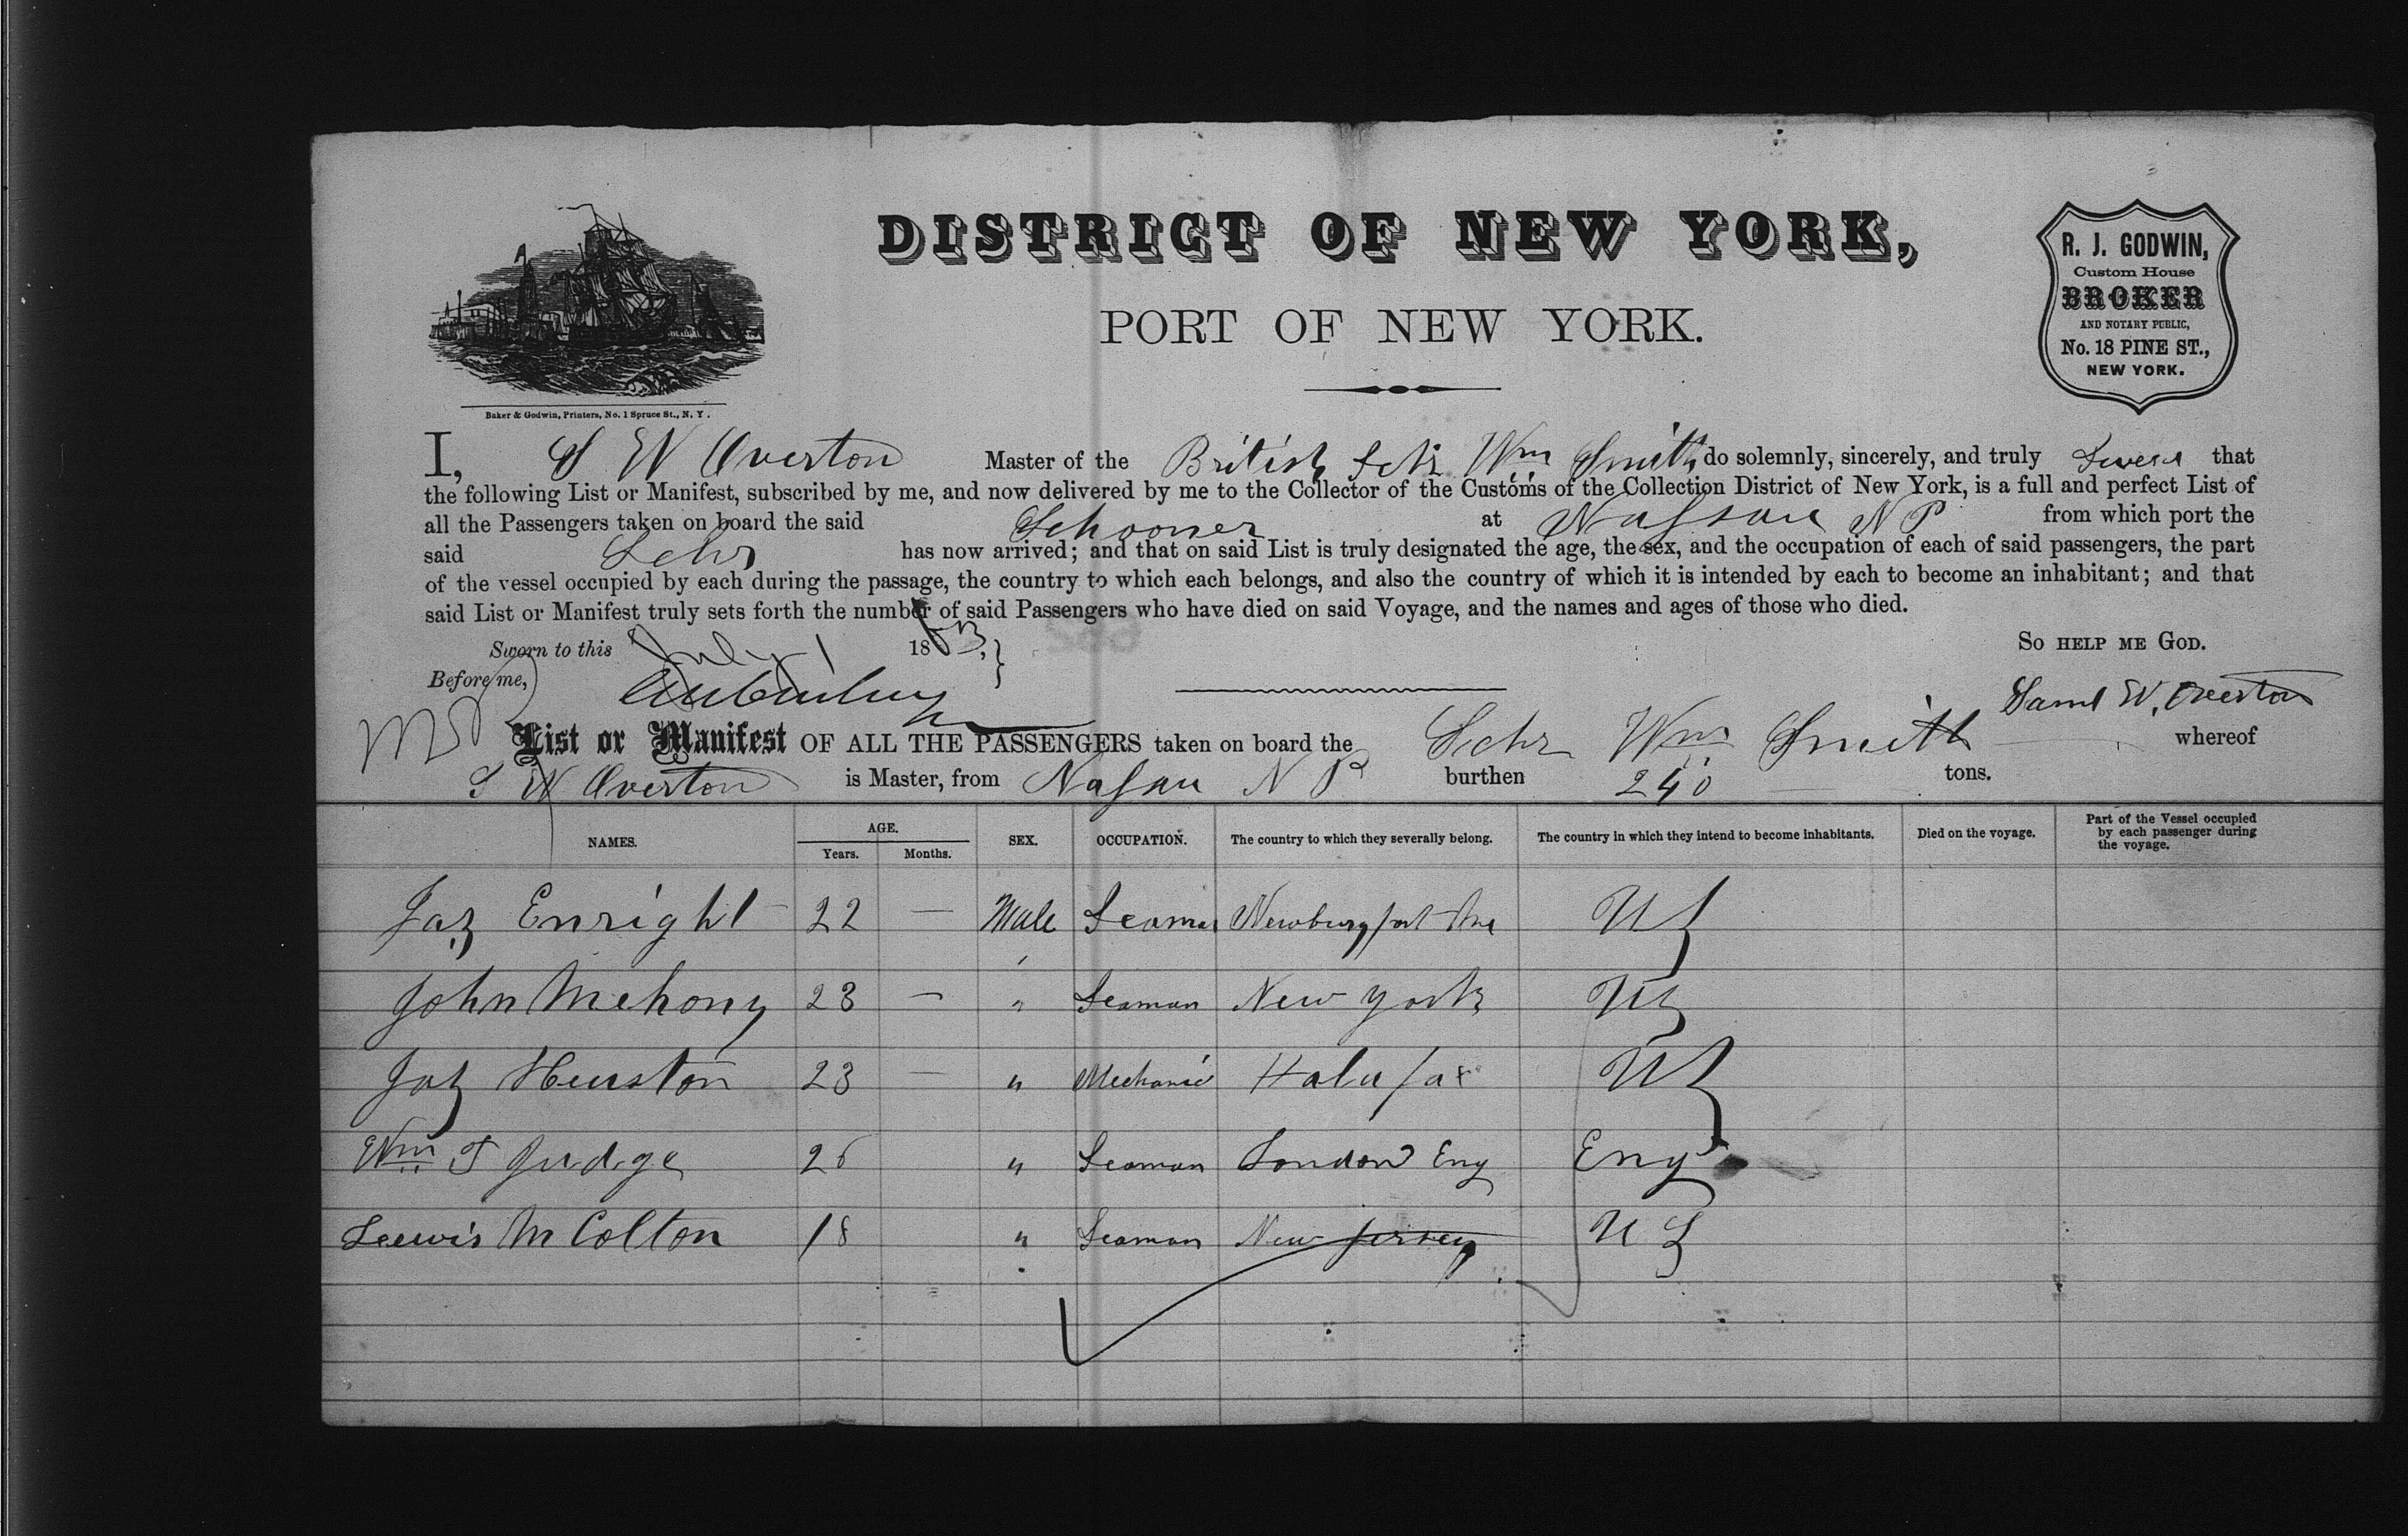 DISTRICT OF NEW YORK,
PORT OF NEW YORK.
R. J. GODWIN,
Custom House
BROKER
AND NOTARY PUBLIC,
No. 18 PINE ST.,
NEW YORK.
Baker & Godwin, Printers, No. 1 Spruce St., N. Y.
I, S W Overton Master of the British Schr Wm Smith do solemnly, sincerely, and truly Swear that
the following List or Manifest, subscribed by me, and now delivered by me to the Collector of the Customs of the Collection District of New York, is a full and perfect List of
all the Passengers taken on board the said Schooner at Nassau N P from which port the
said Schr has now arrived; and that on said List is truly designated the age, the sex, and the occupation of each of said passengers, the part
of the vessel occupied by each during the passage, the country to which each belongs, and also the country of which it is intended by each to become an inhabitant; and that
said List or Manifest truly sets forth the number of said Passengers who have died on said Voyage, and the names and ages of those who died.
Sworn to this July 1 1863, So help me God.
Before me, Saml W. Overton
List or Manifest OF ALL THE PASSENGERS taken on board the Schr Wm Smith whereof
S W Overton is Master, from Nassau N P burthen 240 tons.
NAMES. AGE. Years. Months. SEX. OCCUPATION. The country to which they severally belong. The country in which they intend to become inhabitants. Died on the voyage. Part of the Vessel occupied by each passenger during the voyage.
Jas Enright 22 — Male Seaman Newburyport US
John Mehony 23 — " Seaman New York US
Jas Heuston 23 — " Mechanic Halafax US
Wm T Judge 26 " Seaman London Eng Eng
Leewis M Colton 18 " Seaman New Jersey U S